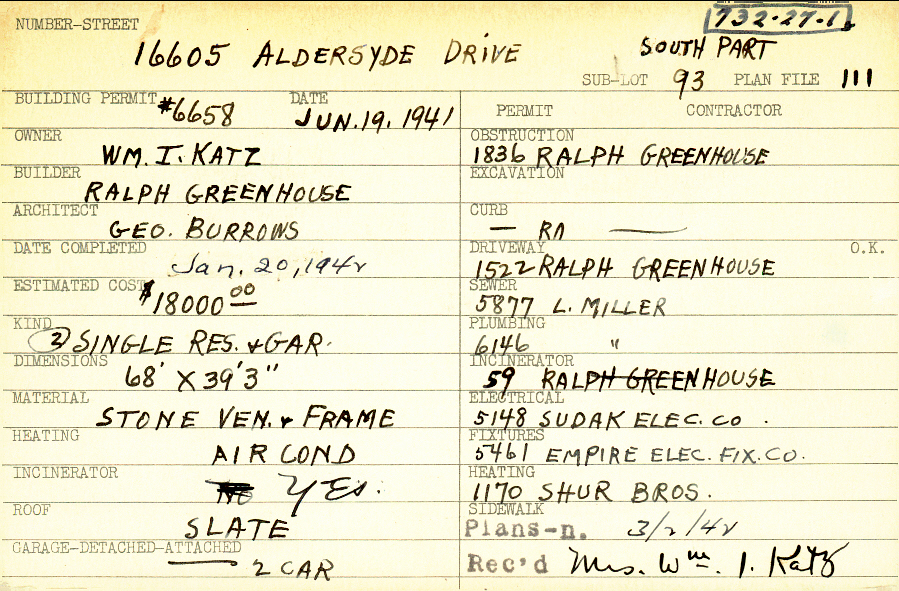 732-27-1
NUMBER-STREET
16605 ALDERSYDE DRIVE SOUTH PART
SUB-LOT 93 PLAN FILE 111
BUILDING PERMIT #6658 DATE JUN. 19. 1941
PERMIT CONTRACTOR
OWNER WM. I. KATZ
OBSTRUCTION 1836 RALPH GREENHOUSE
BUILDER RALPH GREENHOUSE
EXCAVATION
ARCHITECT GEO. BURROWS
CURB — RA —
DATE COMPLETED Jan. 20, 1942
DRIVEWAY 1522 RALPH GREENHOUSE O.K.
ESTIMATED COST $18000 00
SEWER 5877 L. MILLER
KIND 2 SINGLE RES. & GAR.
PLUMBING 6146 "
DIMENSIONS 68' X 39'3"
INCINERATOR 59 RALPH GREENHOUSE
MATERIAL STONE VEN. & FRAME
ELECTRICAL 5148 SUDAK ELEC. CO.
HEATING AIR COND
FIXTURES 5461 EMPIRE ELEC. FIX. CO.
INCINERATOR No YES.
HEATING 1170 SHUR BROS.
ROOF SLATE
SIDEWALK
Plans-n. 3/2/42
GARAGE-DETACHED-ATTACHED — 2 CAR
Rec'd Mrs. Wm. I. Katz